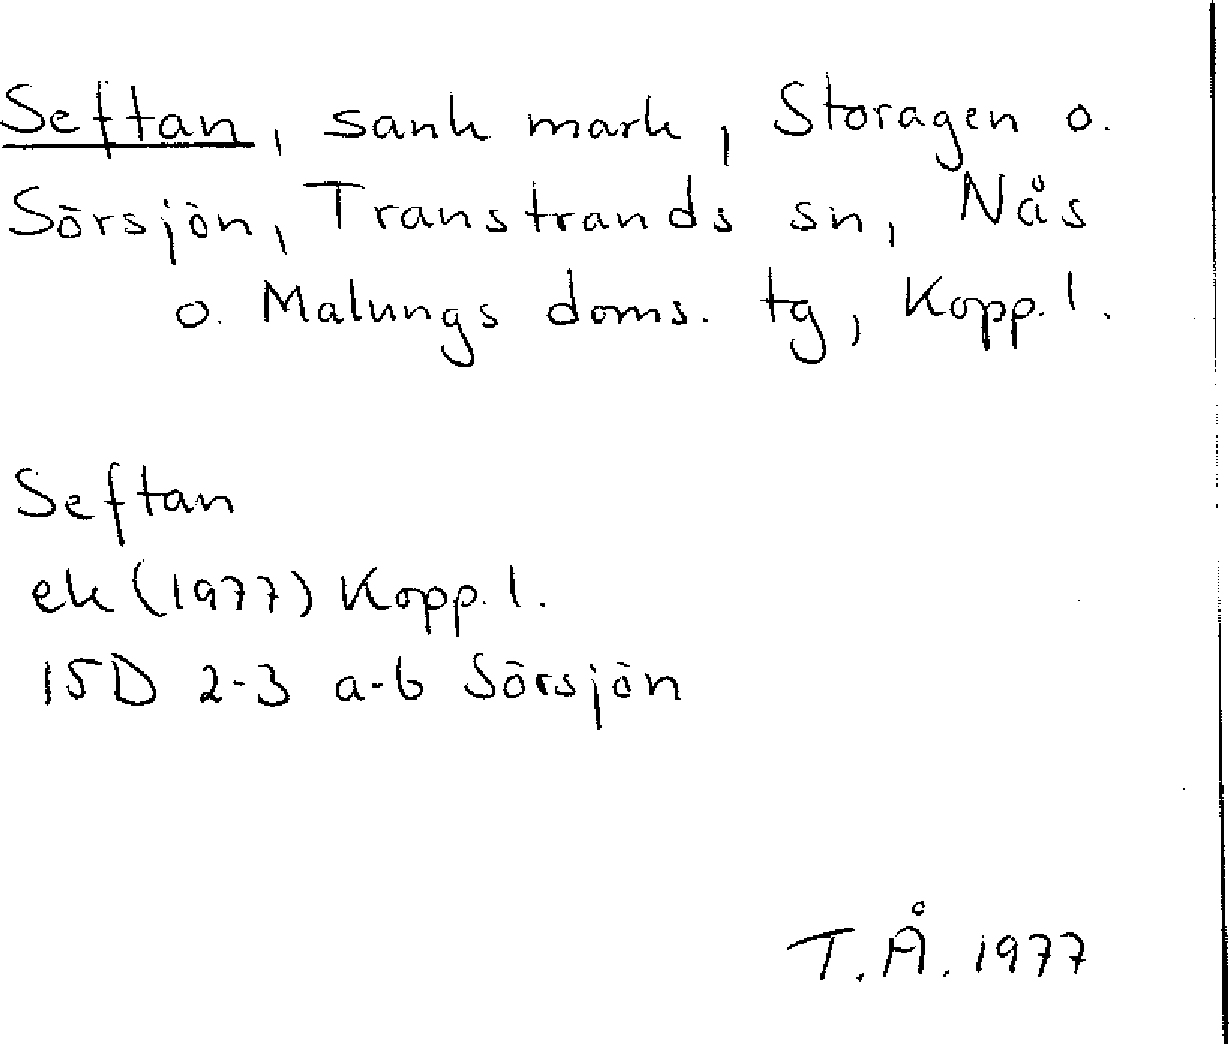 Seftan, sank mark, Storagen o.
Sörsjön, Transtrands sn, Nås
o. Malungs doms. tg, Kopp. l.
Seftan
ek (1977) Kopp. l.
15D 2-3 a-b Sörsjön
T.Å. 1977